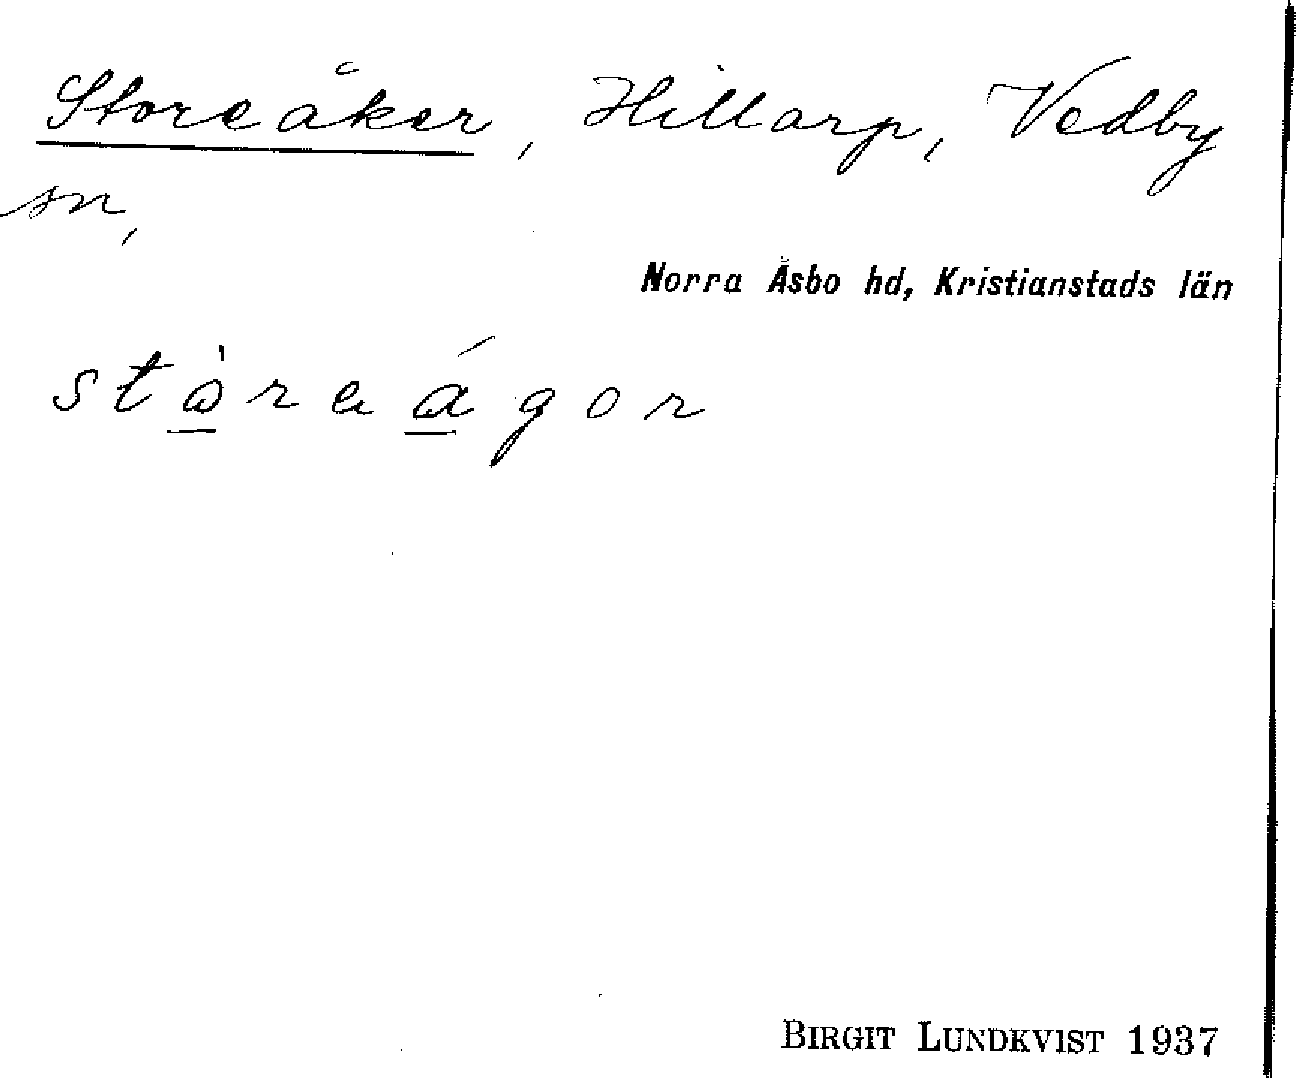 Storeåker, Hillarp, Vedby
sn,
Norra Åsbo hd, Kristianstads län
BIRGIT LUNDKVIST 1937